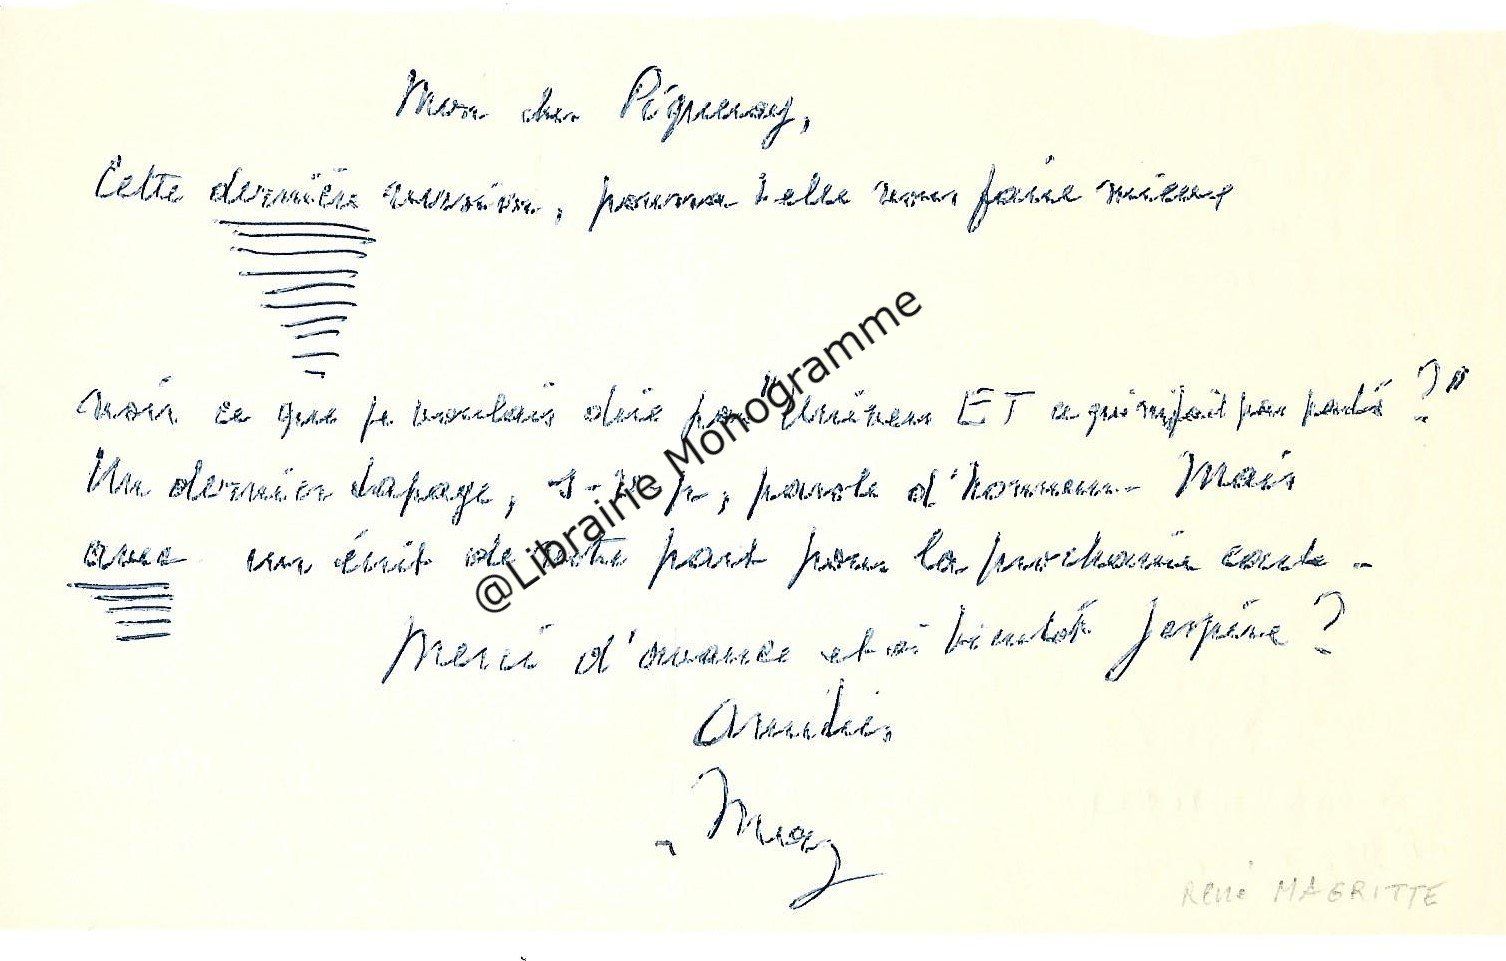 Mon cher Piqueray,
Cette dernière version, pourra t-elle vous faire mieux
voir ce que je voulais dire par "Univers ET a qui n'fait pas partie ?"
Un dernier tapage, s-v-p, parole d'honneur - Mais
avec un écrit de votre part pour la prochaine carte -
Merci d'avance et à bientôt j'espère ?
Amitiés,
Mag
René MAGRITTE
@Librairie Monogramme